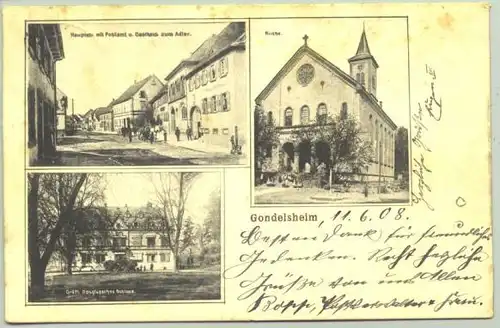 Hauptstr. mit Postamt u. Gasthaus zum Adler.
Kirche.
Gräfl. Douglas'sches Schloss.
Gondelsheim, 11. 6. 08.
Besten Dank für freundliches
Gedenken. Recht herzliche
Grüße von uns Allen
Postverwalter u. Frau.